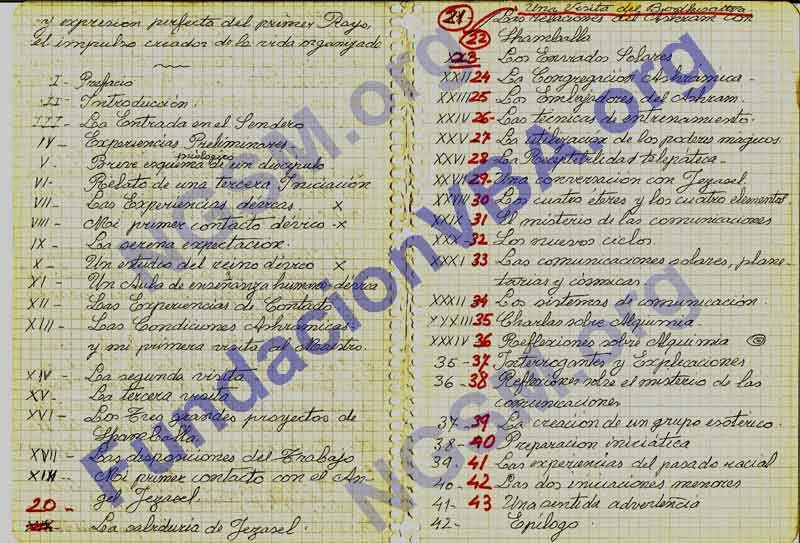 y expresion perfecta del primer Rayo,
el impulso creador de la vida organizada
I - Prefacio
II - Introducción.
III - La Entrada en el Sendero
IV - Experiencias Preliminares
psicológico
V - Breve esquema de un discípulo
VI - Relato de una tercera Iniciación
VII - Las Experiencias dévicas - x
VIII - Mi primer contacto dévico - x
IX - La serena expectación
X - Un estudio del reino dévico x
XI - Un Aula de enseñanza humano-dévica
XII - Las Experiencias de Contacto
XIII - Las Condiciones Ashrámicas
y mi primera visita al Maestro
XIV - La segunda visita
XV - La tercera visita
XVI - Los Tres grandes proyectos de
Shamballa
XVII - Las disposiciones del Trabajo
XIII - Mi primer contacto con el An-
gel Jezasel
20 -
XIX - La sabiduría de Jezasel.
Una Visita del Bodhisattva
21 - Las relaciones del Ashram con
22 Shamballa
23 - Los Enviados Solares
XXII 24 La Congregación Ashrámica -
XXIII 25 Los Embajadores del Ashram.
XXIV 26 - Las técnicas de entrenamiento.
XXV 27 La utilización de los poderes mágicos
XXVI 28 La Receptibilidad telepática -
XXVII 29 - Una conversación con Jezasel
XXVIII 30 Los cuatro éteres y los cuatro elemental
XXIX - 31 El misterio de las comunicaciones
XXX - 32 Los nuevos ciclos.
XXXI 33 Las comunicaciones solares, plane-
tarias y cósmicas.
XXXII 34 Los sistemas de comunicación.
XXXIII 35 Charlas sobre Alquimia -
XXXIV 36 Reflexiones sobre Alquimia
35 - 37 Interrogantes y Explicaciones
36 - 38 Reflexiones sobre el misterio de las
comunicaciones
37 - 39 La creación de un grupo esotérico.
38 - 40 Preparación iniciática
39 - 41 Las experiencias del pasado racial
40 - 42 Las dos iniciaciones menores
41 - 43 Una sentida advertencia
42 - Epílogo.
FundacionVBA.org